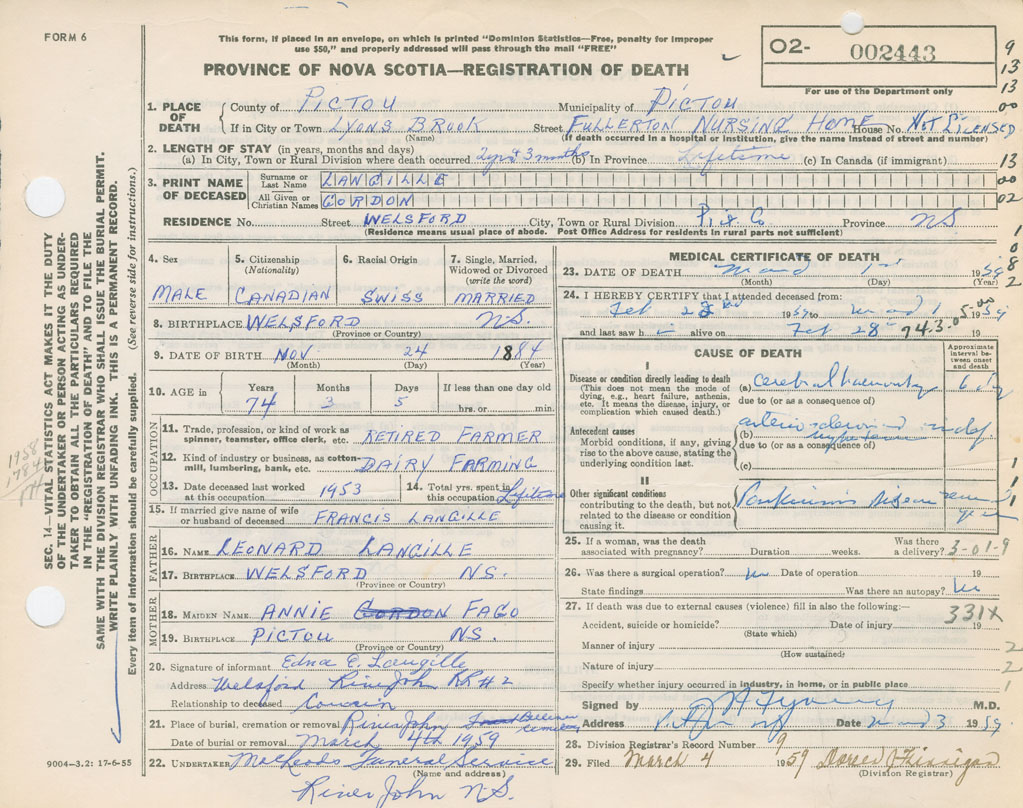 FORM 6
This form, if placed in an envelope, on which is printed "Dominion Statistics—Free, penalty for improper
use $50," and properly addressed will pass through the mail "FREE"
PROVINCE OF NOVA SCOTIA—REGISTRATION OF DEATH
O2- 002443
For use of the Department only
9
13
13
00
13
00
02
1
0
8
2
SEC. 14—VITAL STATISTICS ACT MAKES IT THE DUTY
OF THE UNDERTAKER OR PERSON ACTING AS UNDER-
TAKER TO OBTAIN ALL THE PARTICULARS REQUIRED
IN THE "REGISTRATION OF DEATH" AND TO FILE THE
SAME WITH THE DIVISION REGISTRAR WHO SHALL ISSUE THE BURIAL PERMIT.
WRITE PLAINLY WITH UNFADING INK. THIS IS A PERMANENT RECORD.
Every item of information should be carefully supplied. (See reverse side for instructions.)
1958
1784
1. PLACE OF DEATH County of PICTOU Municipality of PICTOU
If in City or Town LYONS BROOK Street FULLERTON NURSING HOME House No. NOT LICENSED
(Name) (If death occurred in a hospital or institution, give the name instead of street and number)
2. LENGTH OF STAY (in years, months and days)
(a) In City, Town or Rural Division where death occurred 2 yrs 3 months (b) In Province Lifetime (c) In Canada (if immigrant)
3. PRINT NAME OF DECEASED Surname or Last Name LANGILLE
All Given or Christian Names GORDON
RESIDENCE No. Street WELSFORD City, Town or Rural Division Pict Co. Province NS.
(Residence means usual place of abode. Post Office Address for residents in rural parts not sufficient)
4. Sex 5. Citizenship (Nationality) 6. Racial Origin 7. Single, Married, Widowed or Divorced (write the word)
MALE CANADIAN SWISS MARRIED
8. BIRTHPLACE WELSFORD NS.
(Province or Country)
9. DATE OF BIRTH NOV 24 1884
(Month) (Day) (Year)
10. AGE in Years Months Days If less than one day old
74 3 5 hrs. or min.
OCCUPATION
11. Trade, profession, or kind of work as spinner, teamster, office clerk, etc. RETIRED FARMER
12. Kind of industry or business, as cotton-mill, lumbering, bank, etc. DAIRY FARMING
13. Date deceased last worked at this occupation 1953 14. Total yrs. spent in this occupation Lifetime
15. If married give name of wife or husband of deceased FRANCIS LANGILLE
FATHER
16. NAME LEONARD LANGILLE
17. BIRTHPLACE WELSFORD NS.
(Province or Country)
MOTHER
18. MAIDEN NAME ANNIE GORDON FAGO
19. BIRTHPLACE PICTOU NS.
(Province or Country)
20. Signature of informant Edna E. Langille
Address Welsford River John RR#2
Relationship to deceased Cousin
21. Place of burial, cremation or removal River John cemetery
Date of burial or removal March 4th 1959
22. UNDERTAKER MacLeods Funeral Service
(Name and address)
River John N.S.
9004-3.2: 17-6-55
MEDICAL CERTIFICATE OF DEATH
23. DATE OF DEATH March 1st 1959
(Month) (Day) (Year)
24. I HEREBY CERTIFY that I attended deceased from:
Feb 1959 to March 1 1959
and last saw h alive on Feb 28 19
743.0 5.00
CAUSE OF DEATH
Approximate interval between onset and death
I
Disease or condition directly leading to death
(This does not mean the mode of dying, e.g., heart failure, asthenia, etc. It means the disease, injury, or complication which caused death.)
(a) cerebral haemorrhage 6 day
due to (or as a consequence of)
Antecedent causes
Morbid conditions, if any, giving rise to the above cause, stating the underlying condition last.
(b)
due to (or as a consequence of)
(c)
II
Other significant conditions
contributing to the death, but not related to the disease or condition causing it.
Parkinsons disease several years
1
1
1
25. If a woman, was the death associated with pregnancy? Duration weeks. Was there a delivery?
3-01-9
26. Was there a surgical operation? no Date of operation 19
State findings Was there an autopsy? no
27. If death was due to external causes (violence) fill in also the following:—
331X
Accident, suicide or homicide? Date of injury 19
(State which)
Manner of injury 2
(How sustained)
Nature of injury 2
Specify whether injury occurred in industry, in home, or in public place 1
Signed by M.D.
Address Pictou NS Date March 3 1959
28. Division Registrar's Record Number 9
29. Filed March 4 1959
(Division Registrar)